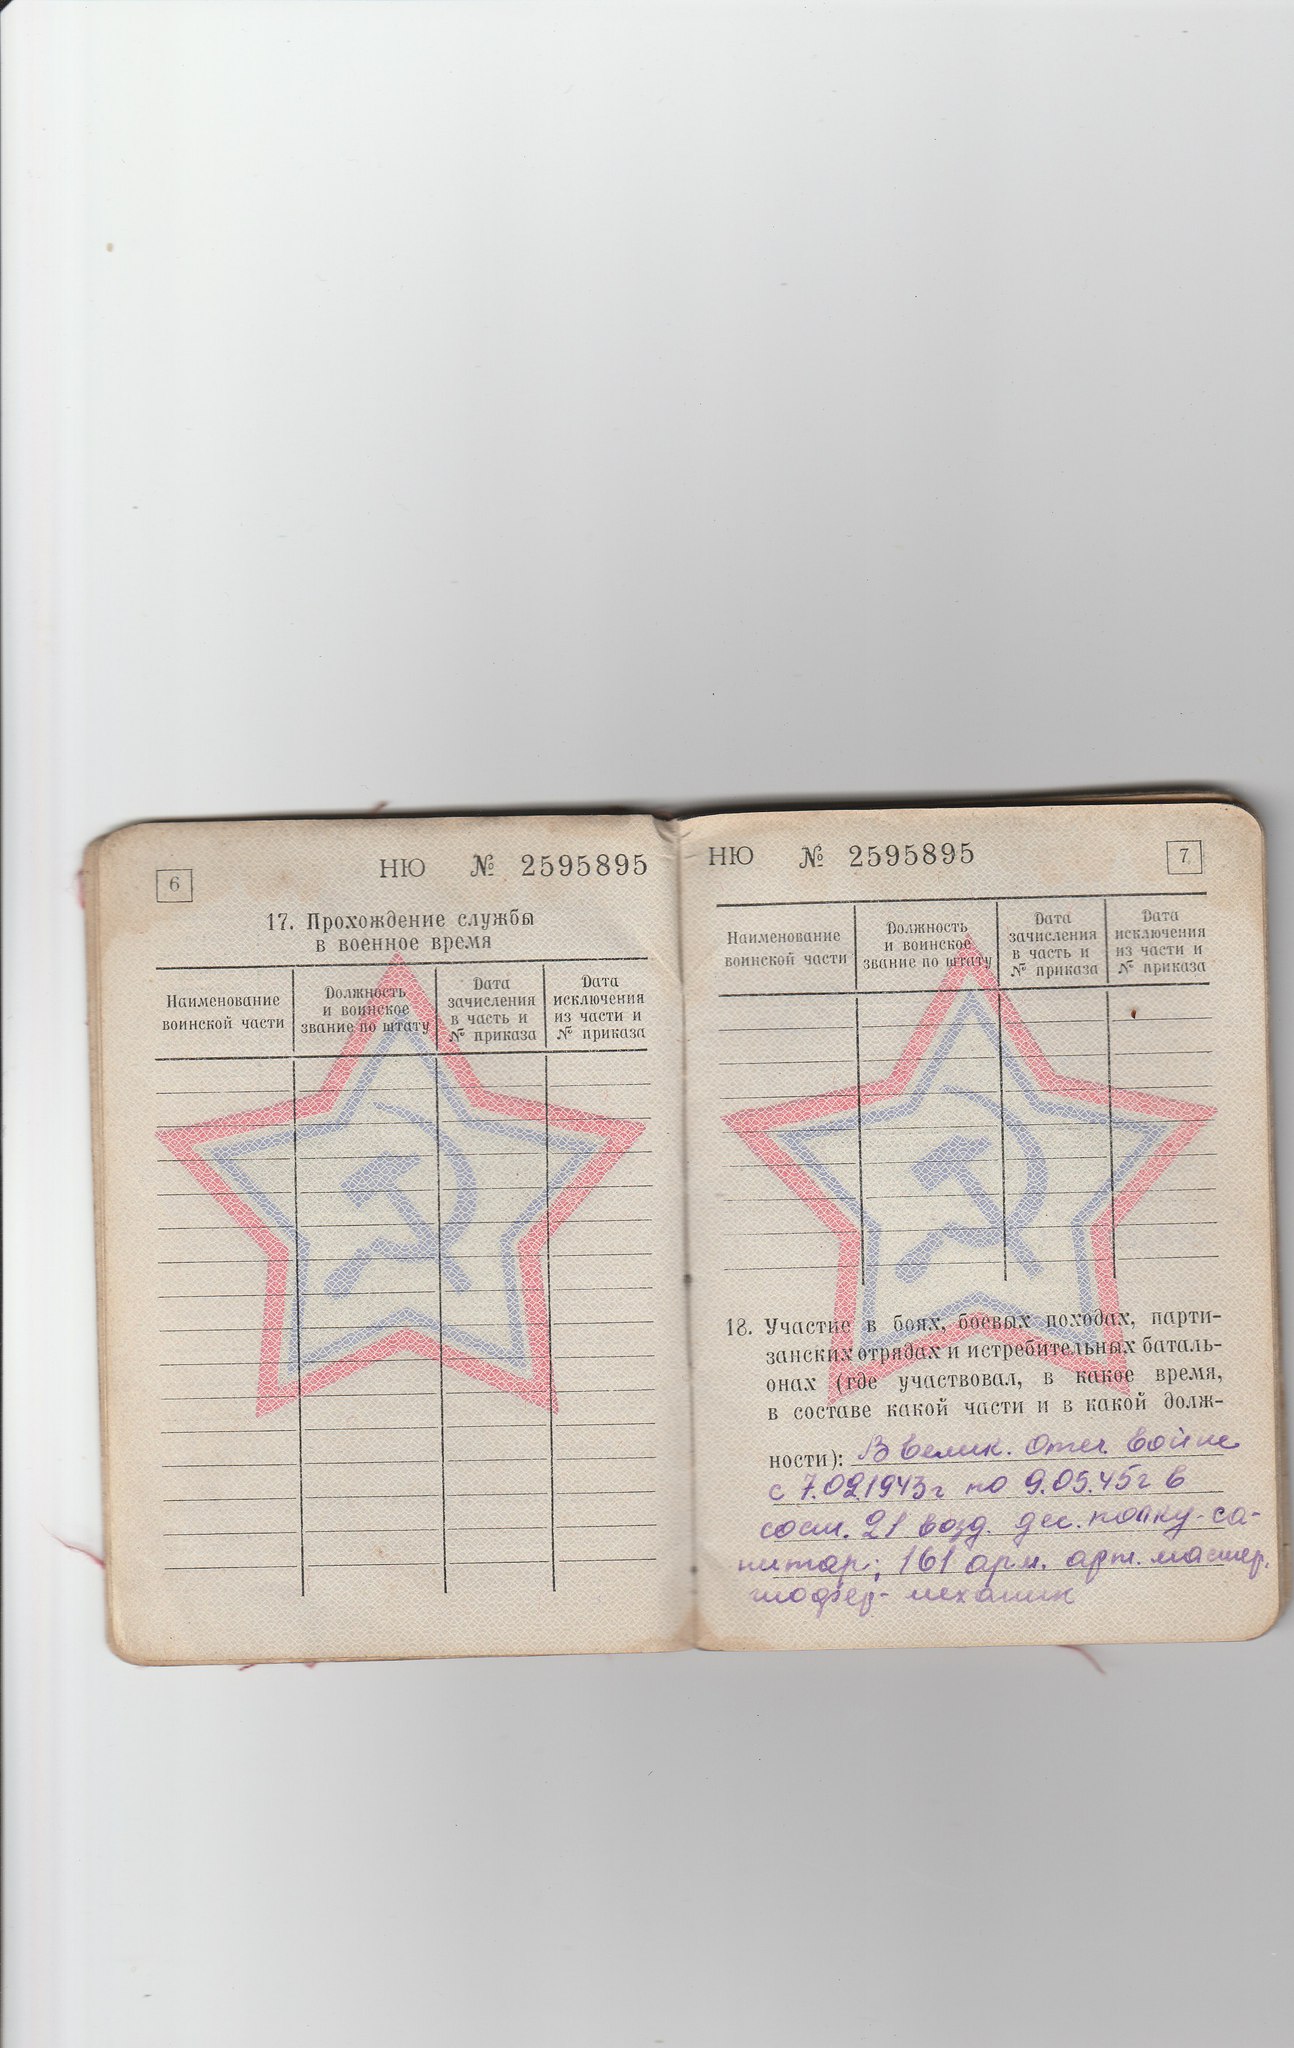 6
НЮ № 2595895
17. Прохождение службы
в военное время
Наименование
воинской части
Должность
и воинское
звание по штату
Дата
зачисления
в часть и
№ приказа
Дата
исключения
из части и
№ приказа
НЮ № 2595895
7
Наименование
воинской части
Должность
и воинское
звание по штату
Дата
зачисления
в часть и
№ приказа
Дата
исключения
из части и
№ приказа
18. Участие в боях, боевых походах, парти-
занских отрядах и истребительных баталь-
онах (где участвовал, в какое время,
в составе какой части и в какой долж-
ности): В велик. Отеч. войне
с 7.02.1943г по 9.05.45г в
сост. 21 возд. дес. полку-са-
нитар; 161 арм. арт. мастер.
шофер-механик